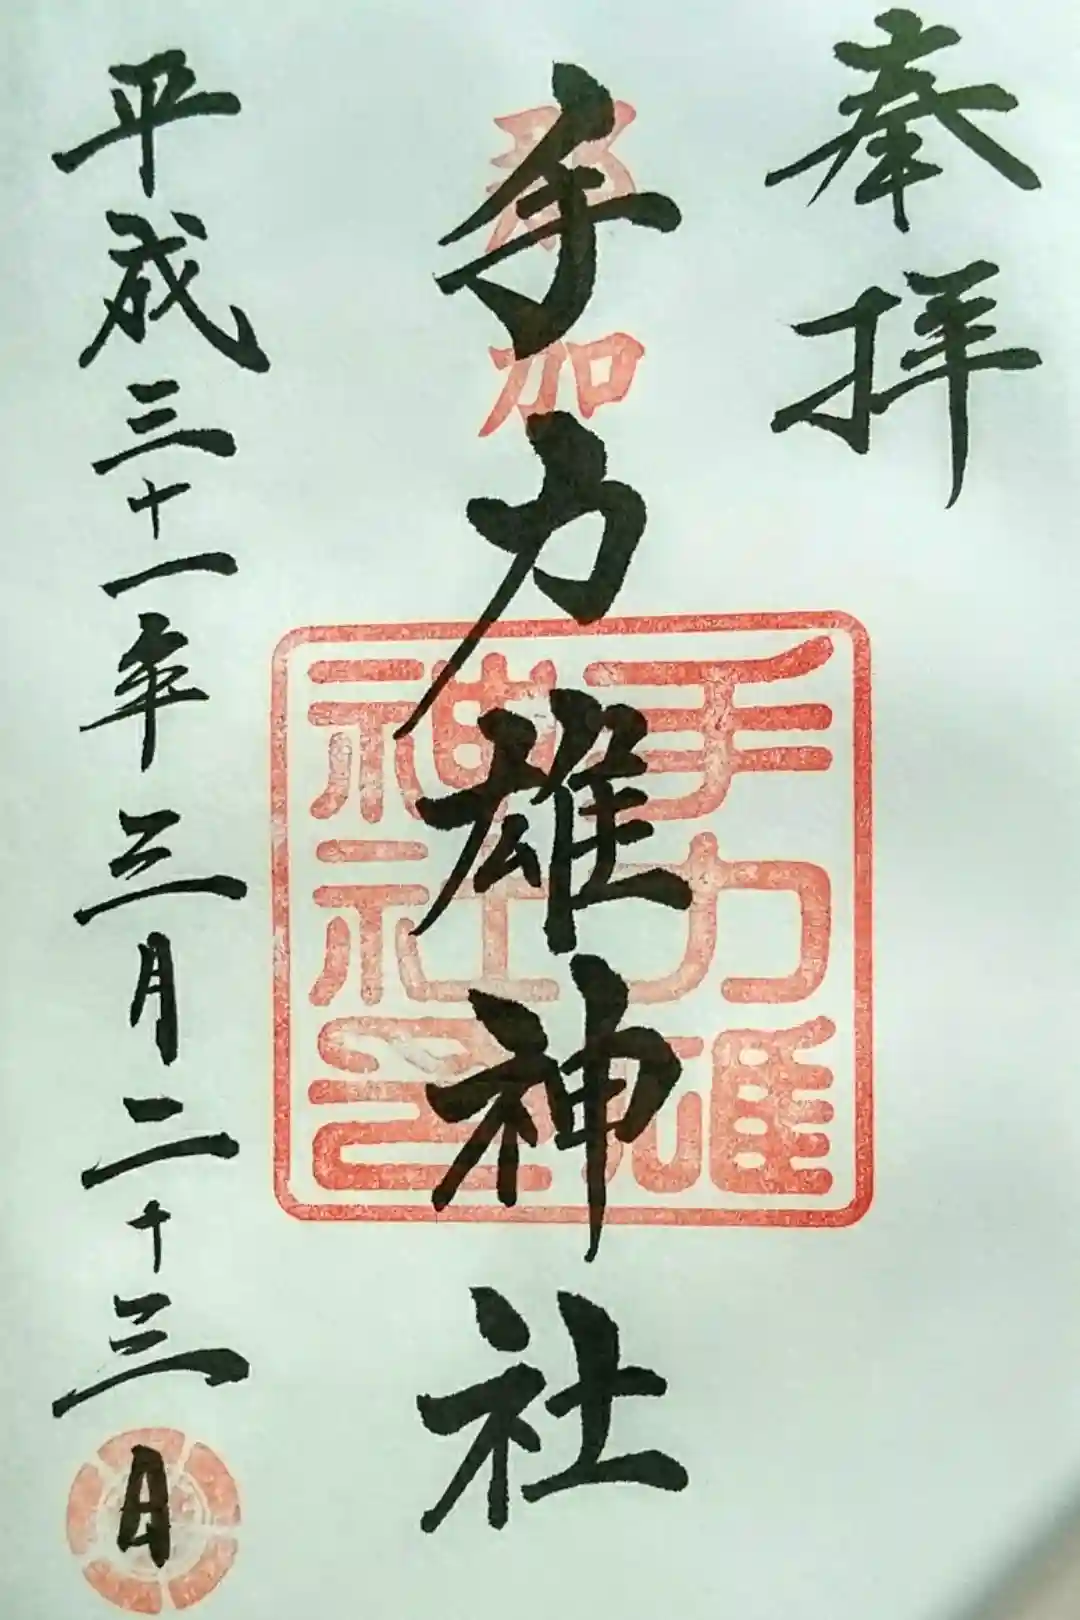 奉拝
那加
手力雄神社
手力雄
神社之
平成三十一年三月二十三日